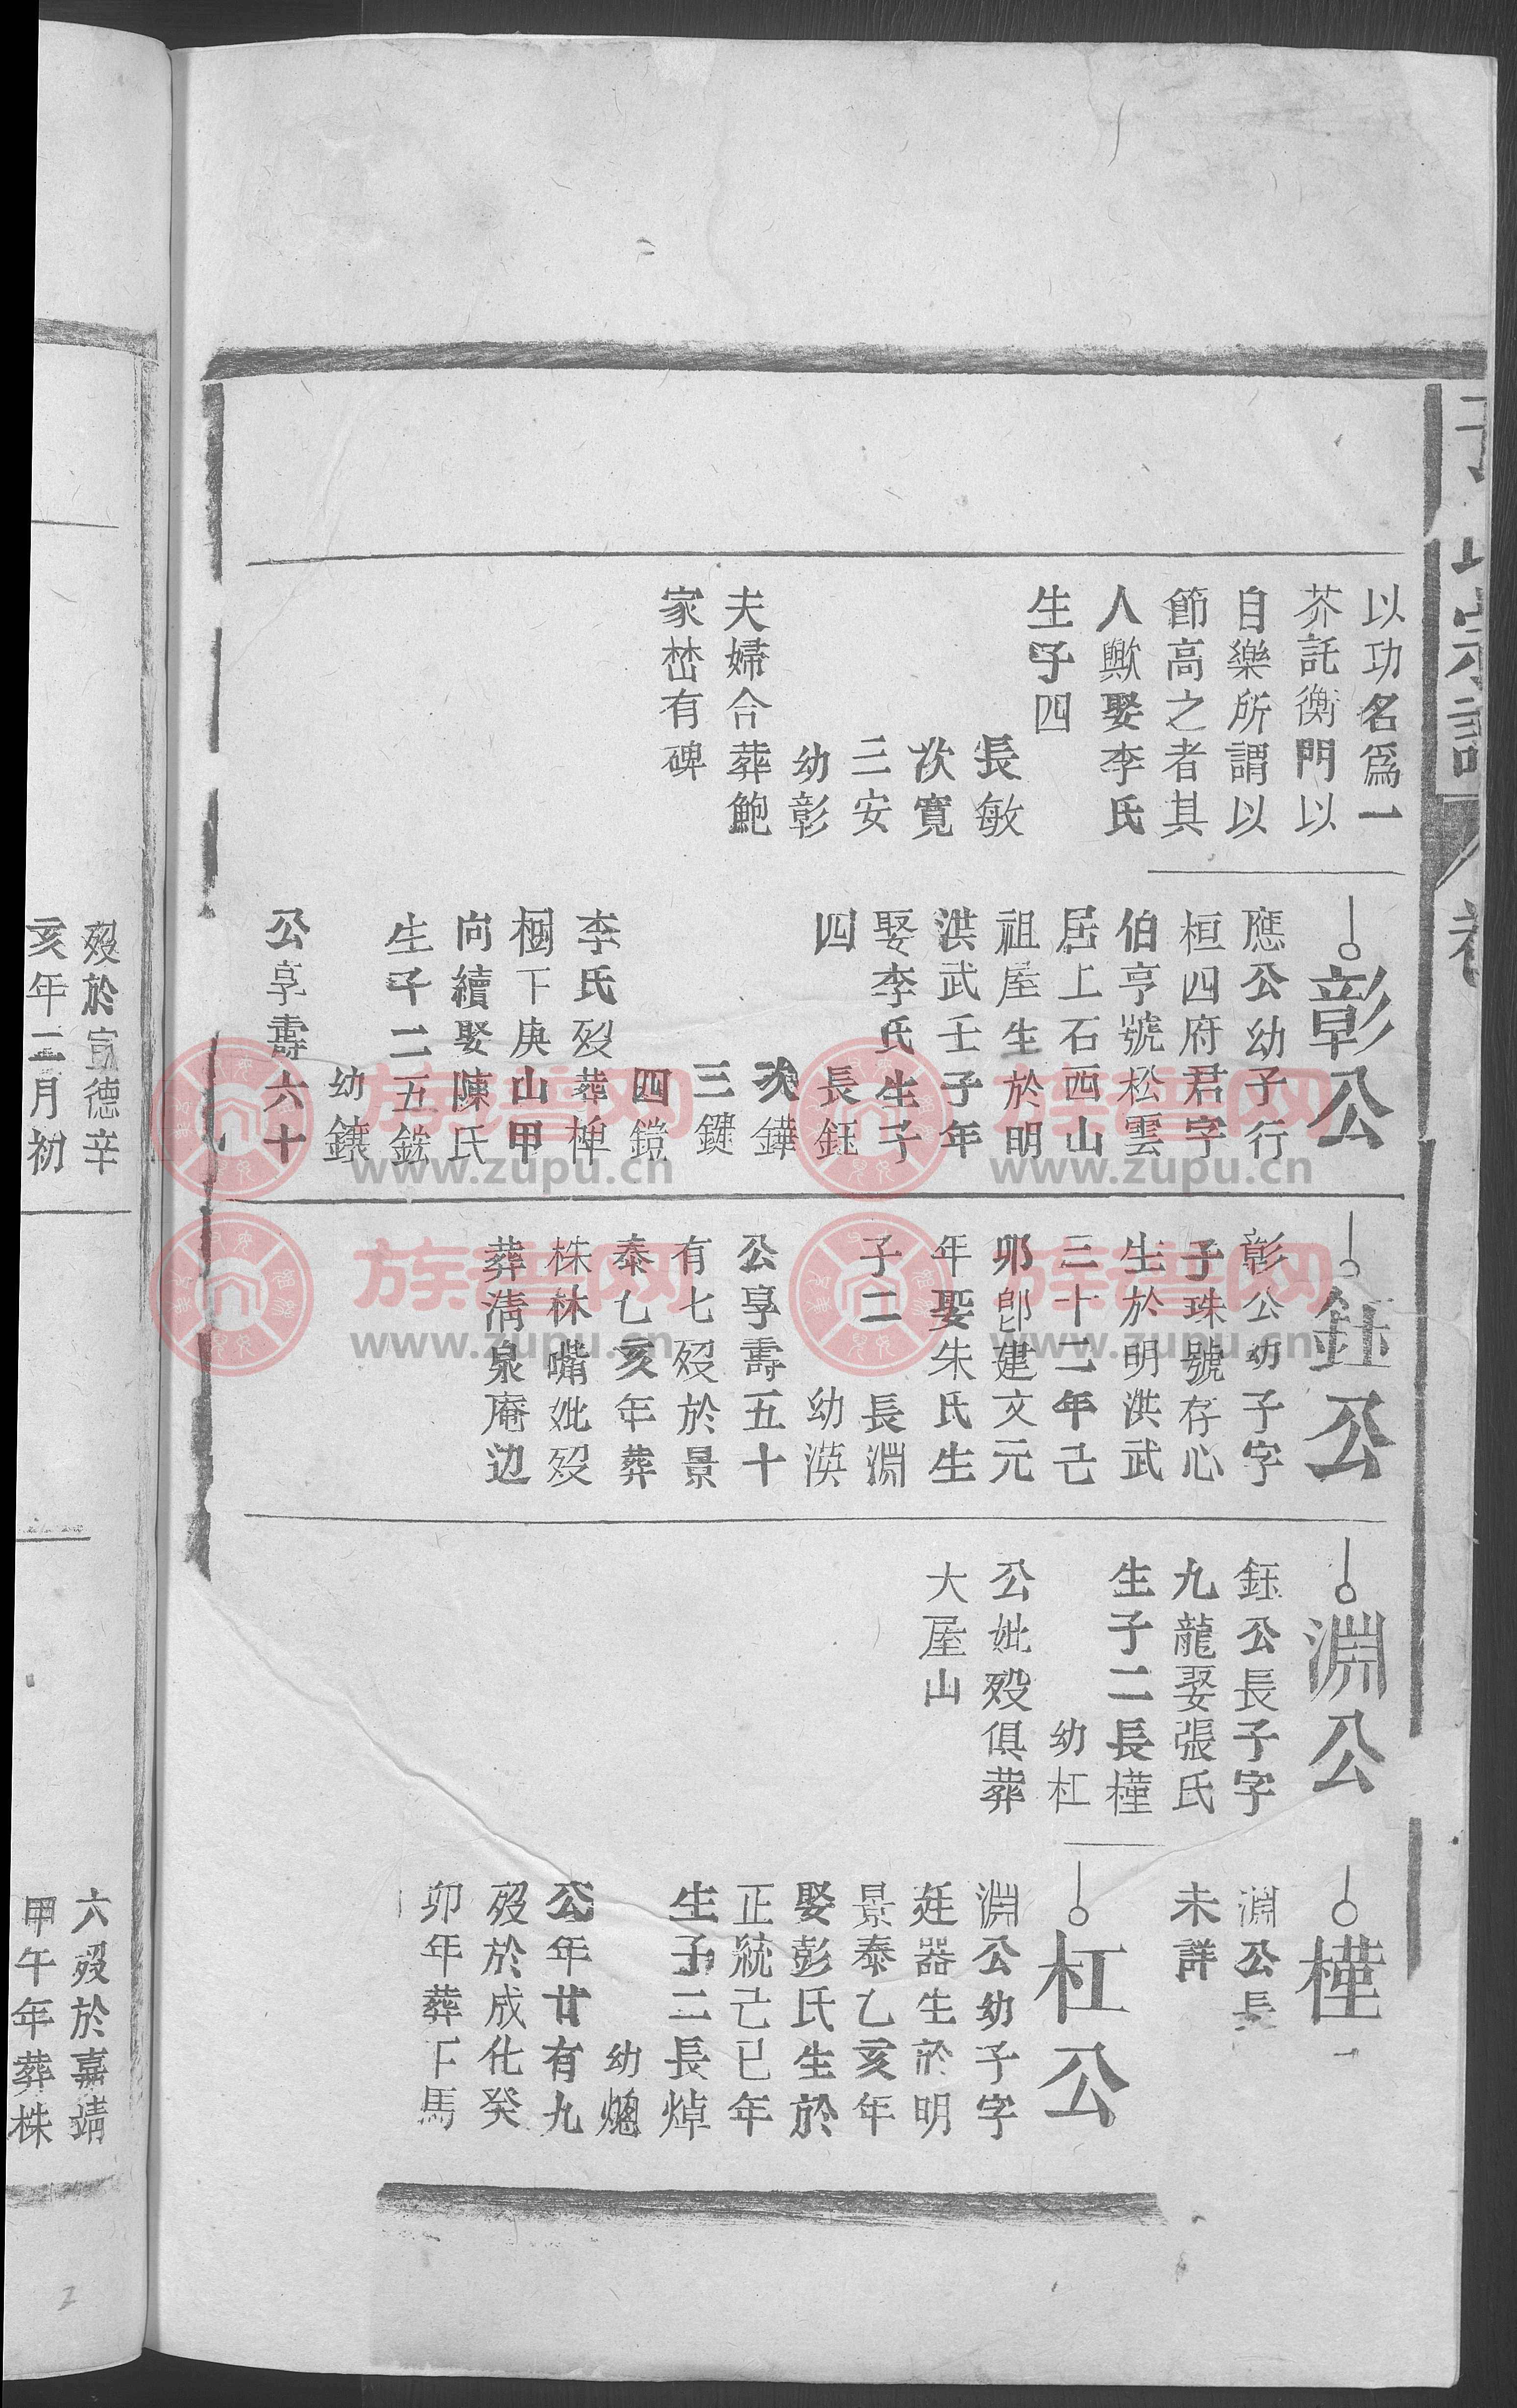 宗譜
卷
以功名爲一
芥託衡門以
自樂所謂以
節高之者其
人歟娶李氏
生子四
長敏
次寬
三安
幼彰
夫婦合葬鮑
家塋有碑
彰公
應公幼子行
桓四府君字
伯亨號松雲
居上石西山
祖屋生於明
洪武壬子年
娶李氏生子
四
長鈺
次鏵
三鏽
四鎧
李氏殁葬樟
樹下庚山甲
向續娶陳氏
生子二五鋐
幼鑲
公享壽六十
鈺公
彰公幼子字
子珠號存心
生於明洪武
三十二年己
卯卽建文元
年娶朱氏生
子二 長淵
幼漢
公享壽五十
有七殁於景
泰乙亥年葬
株林嘴妣殁
葬淸泉庵辺
淵公
鈺公長子字
九龍娶張氏
生子二長槿
幼杠
公妣殁俱葬
大屋山
槿
淵公長
未詳
杠公
淵公幼子字
廷器生於明
景泰乙亥年
娶彭氏生於
正統己巳年
生子二長焯
幼熜
公年廿有九
殁於成化癸
卯年葬下馬
殁於宣德辛
亥年二月初
六殁於嘉靖
甲午年葬株
族譜网
www.zupu.cn
族譜网
www.zupu.cn
族譜网
www.zupu.cn
族譜网
www.zupu.cn